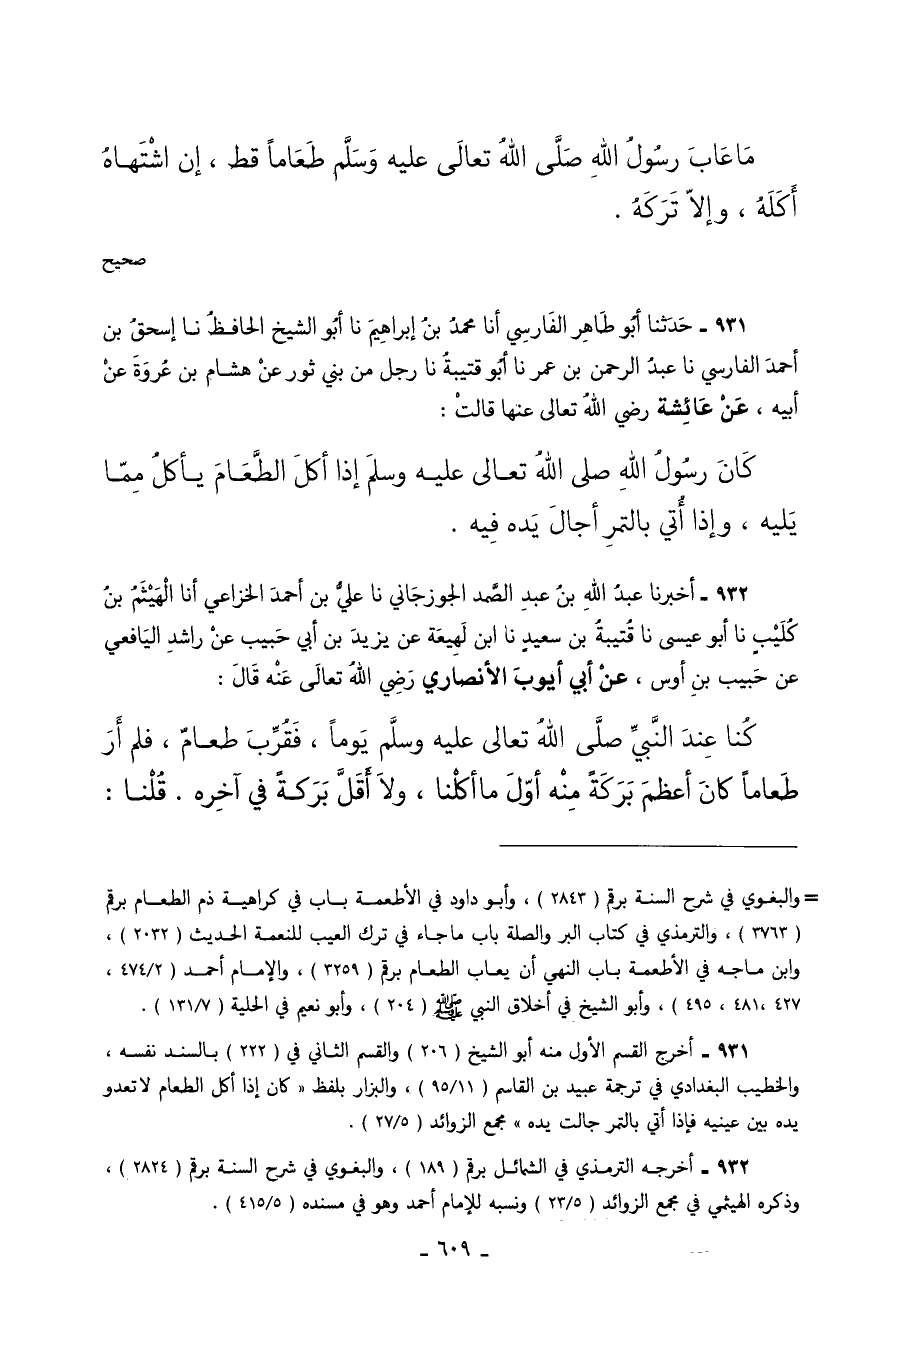 مَاعَابَ رسُولُ اللهِ صَلَّى اللهُ تعالَى عليه وَسَلَّم طَعَاماً قط ، إن اشْتَهـاهُ
أَكَلَهُ ، وإلاّ تَرَكَهُ .
صحيح
٩٣١ ـ حَدَثنا أبُو طَاهِر الفَارِسِي أنا محمدُ بنُ إبراهِيمَ نا أبُو الشيخ الحافـظُ نـا إسحقُ بن
أحمدَ الفارسي نا عبدُ الرحمن بن عمر نا أبُو قتيبةُ نا رجل من بني ثور عنْ هشـام بن عُروَةَ عنْ
أبيه ، عَنْ عَائِشة رضي اللهُ تعالى عنها قالتْ :
كَانَ رسُولُ اللهِ صلى اللهُ تعـالى عليـه وسلمَ إذا أكلَ الطَّعَـامَ يـأكلُ مِمّـا
يَليه ، وإذا أُتي بالتمرِ أجالَ يَده فِيه .
٩٣٢ ـ أخبرنا عبدُ اللهِ بنُ عبدِ الصَّمد الجوزجَاني نا عليُّ بن أحمدَ الخزاعي أنا الْهَيْثَمُ بنُ
كُلَيْبٍ نا أبو عيسى نا قُتيبةُ بن سعيدٍ نا ابن لَهِيعَة عن يزيدَ بن أبي حَبيب عنْ راشدِ اليَافعي
عن حَبيب بنِ أوس ، عنْ أبي أيوبَ الأنصاري رَضِي اللهُ تعالَى عَنْه قَالَ :
كُنا عِندَ النَّبيِّ صلَّى اللهُ تعالى عليه وسلَّم يَوماً ، فَقُرِّبَ طعـامٌ ، فلم أَرَ
طَعاماً كانَ أعظمَ بَرَكَةً مِنْه أوّلَ ماأكلْنا ، ولاَ أَقَلَّ بَرَكـةً في آخِرِه . قُلْنـا :
= والبغوي في شرح السنة برقم ( ٢٨٤٣ ) ، وأبـو داود في الأطعمـة بـاب في كراهيـة ذم الطعـام برقم
( ٣٧٦٣ ) ، والترمذي في كتاب البر والصلة باب ماجاء في ترك العيب للنعمة الحديث ( ٢٠٣٢ ) ،
وابن مـاجـه في الأطعمـة بـاب النهي أن يعـاب الطعام برقم ( ٣٢٥٩ ) ، والإمـام أحمـد ( ٤٧٤/٢ ،
٤٢٧ ،٤٨١ ، ٤٩٥ ) ، وأبو الشيخ في أخلاق النبي ﷺ ( ٢٠٤ ) ، وأبو نعيم في الحلية ( ١٣١/٧ ) .
٩٣١ ـ أخرج القسم الأول منه أبو الشيخ ( ٢٠٦ ) والقسم الثـاني في ( ٢٢٢ ) بـالسنـد نفسـه ،
والخطيب البغدادي في ترجمة عبيد بن القاسم ( ٩٥/١١ ) ، والبزار بلفظ « كان إذا أكل الطعام لاتعدو
يده بين عينيه فإذا أتي بالتمر جالت يده » مجمع الزوائد ( ٢٧/٥ ) .
٩٣٢ ـ أخرجـه الترمـذي في الشمائـل برقم ( ١٨٩ ) ، والبغوي في شرح السنـة برقم ( ٢٨٢٤ ) ،
وذكره الهيثمي في مجمع الزوائد ( ٢٣/٥ ) ونسبه للإمام أحمد وهو في مسنده ( ٤١٥/٥ ) .
ـ ٦٠٩ ـ